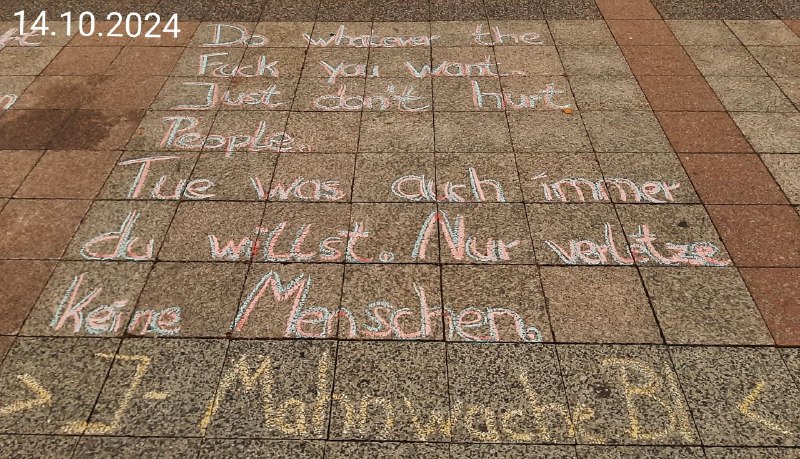 14.10.2024
Do whatever the
Fuck you want.
Just don't hurt
People.
Tue was auch immer
du willst. Nur verletze
Keine Menschen.
> J- Mahnwache BI <